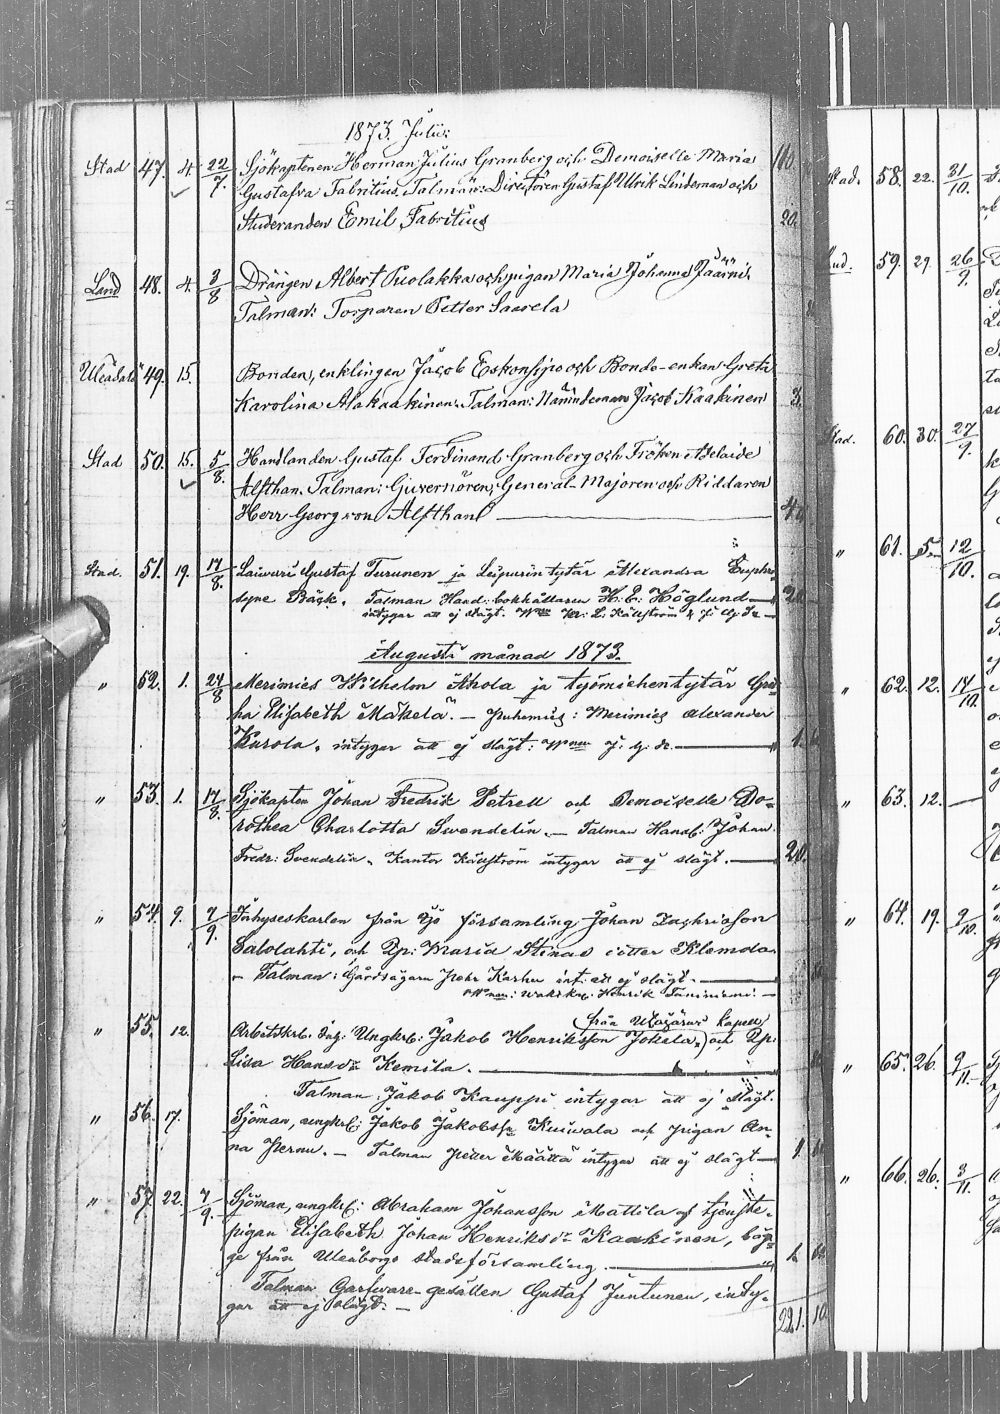 1873. Julii:
Stad 47. 4. 22/7. Sjökaptenen Herman Julius Granberg och Demoiselle Maria 100
Gustafva Fabritius. Talmän: Direktören Gustaf Ulrik Lindeman och
Studeranden Emil Fabritius 20.
Land 48. 4. 3/8 Drängen Albert Puolakka och pigan Maria Johanna Jäärni.
Talman: Torparen Petter Saarela
Uleåsalo 49. 15. Bonden, enklingen Jacob Eskonsipo och Bonde-enkan Greta
Karolina Alakaakinen. Talman: Nämndeman Jacob Kaakinen 3.
Stad 50. 15. 5/8. Handlanden Gustaf Ferdinand Granberg och Fröken Adelaide
Alfthan. Talman: Guvernören, General-Majoren och Riddaren
Herr Georg von Alfthan 40
Stad. 51. 19. 17/8. Laivuri Gustaf Turunen ja Leipurin tytär Alexandra Euphro-
syne Bäck. Talman Hand: bokhållaren H: E: Höglund 20
intygar att ej slägt.
Augusti månad 1873.
" 52. 1. 24/8 Merimies Wilhelm Ahola ja työmiehentytär Gre-
ta Elisabeth Mäkelä. – puhemies: Merimies Alexander
Karola. intygar att ej slägt: 1.
" 53. 1. 17/8. Sjökapten Johan Fredrik Petrell och Demoiselle Do-
rothea Charlotta Swendelin. – Talman Handl: Johan
Fredr: Svendelin. Kantor Källström intygar att ej slägt. 20.
" 54. 9. 7/9. Inhyseskarlen från Ijo församling Johan Zachriasson
Salolahti, och Qp: Maria Stina dotter Klemola
– Talman: Gårdsägaren Pehr Karhu int: att ej slägt.
Henrik Tanninemi. –
" 55. 12. (från Uleåsalo Kapell)
Arbetskrl: Inh: Ungkrl: Jakob Henriksson Jokela, och Qp:
Lisa Hansdr Kemila.
Talman, Jakob Kauppi intygar att ej slägt.
" 56. 17. Sjöman, ungkrl: Jakob Jakobssn Kuivala och pigan An-
na Pernu. – Talman Petter Määttä intygar att ej slägt 1.
" 57. 22. 7/9. Sjöman, ungkrl: Abraham Johansson Mattila och tjenste-
pigan Elisabeth Johan Henriksdr Kaakinen, båg-
ge från Uleåborgs stadsförsamling. 1.
Talman Garfvare-gesällen Gustaf Juntunen, inty-
gar att ej slägt. –
221. 10
58. 22. 31/10.
59. 29. 26/9.
60. 30. 27/9.
" 61. 5. 12/10.
" 62. 12. 14/10.
" 63. 12. —
" 64. 19. 9/10.
" 65. 26. 9/11.
" 66. 26. 3/11.